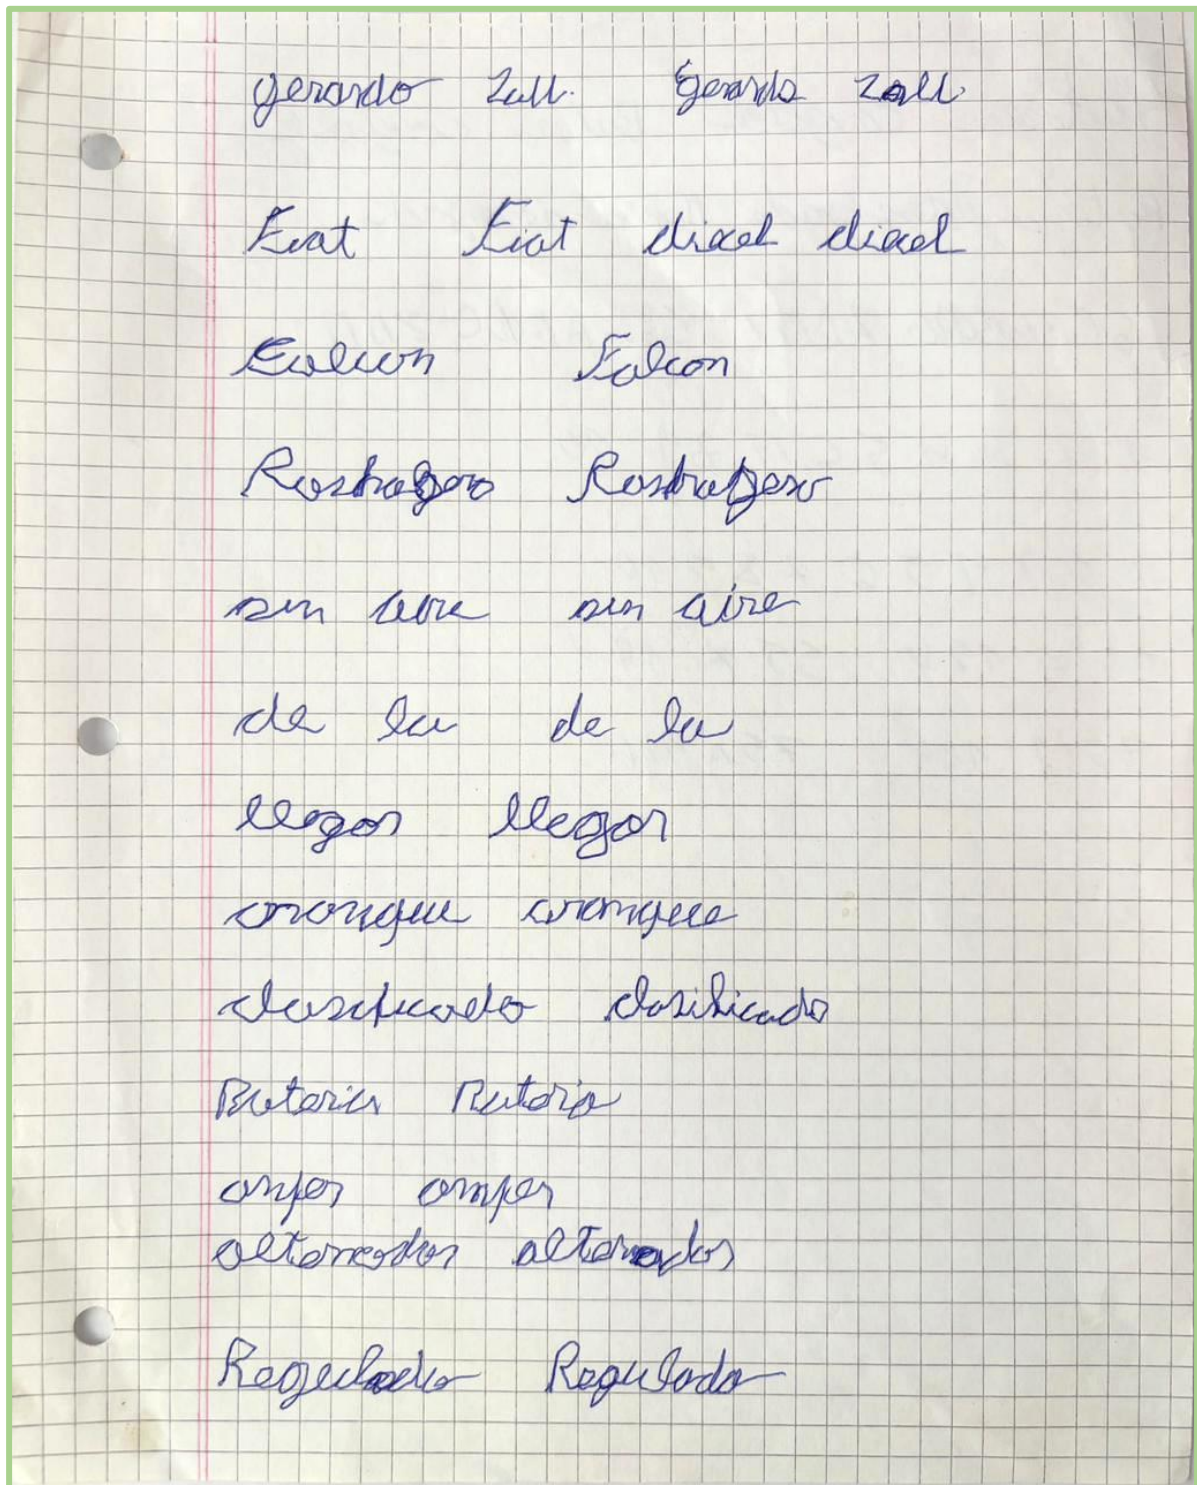 gerardo Zall. Gerardo Zall.
Fiat Fiat diecel diecel
Falcon Falcon
Rastrogero Rastrogero
sin aire sin aire
de la de la
llegar llegar
aranque aranque
clasificado clasificado
Bateria Bateria
amper amper
alternador alternador
Regulado Regulado